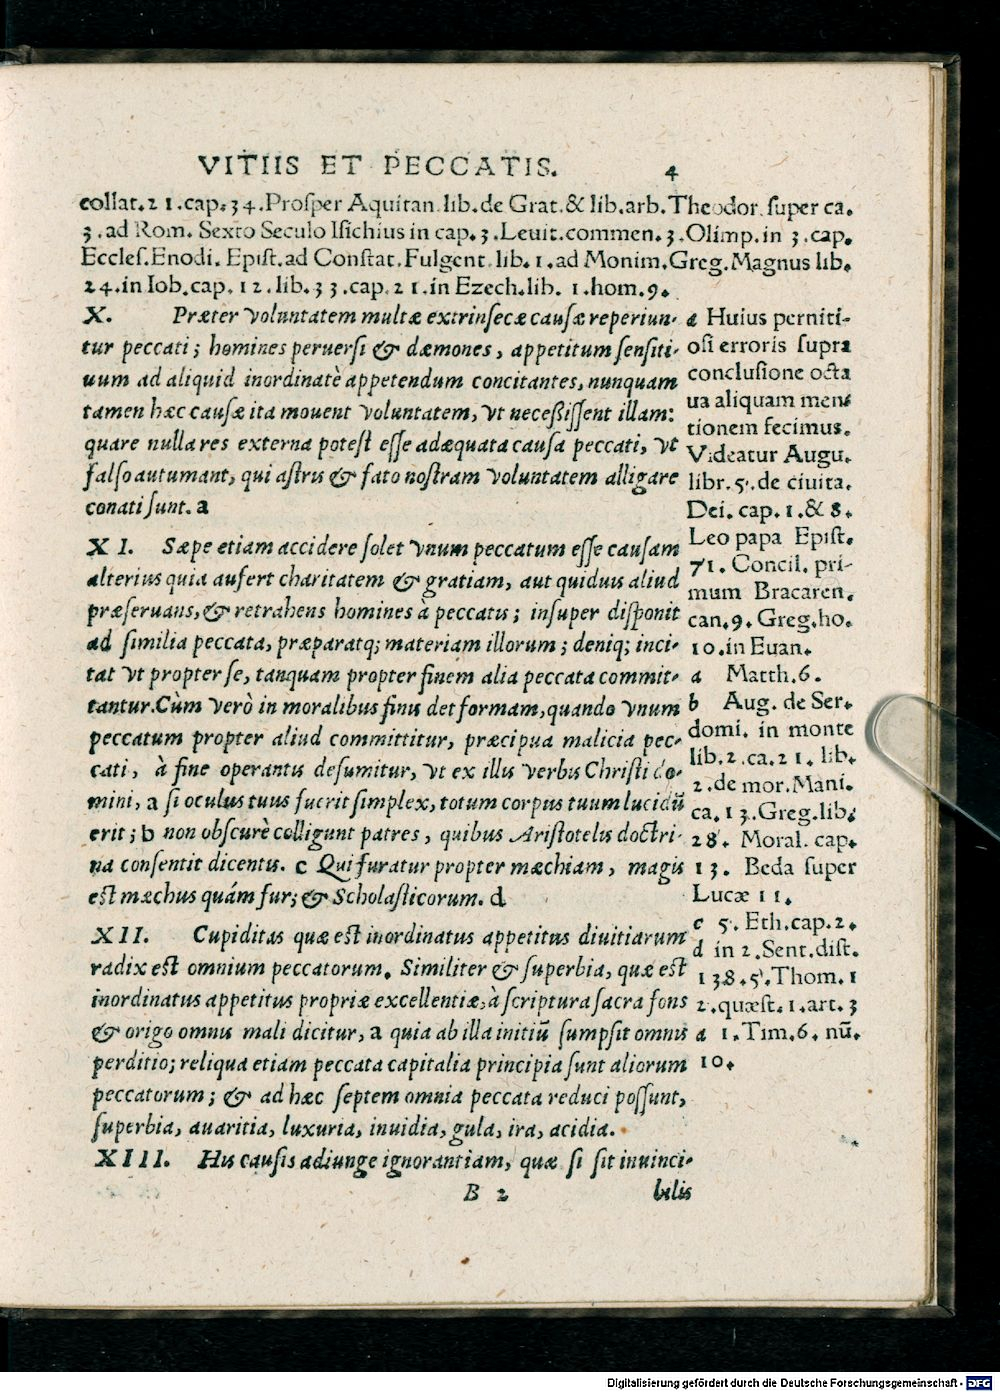 VITIIS ET PECCATIS. 4
collat.21.cap.34.Prosper Aquitan.lib.de Grat.& lib.arb.Theodor.super ca.
3.ad Rom. Sexto Seculo Isichius in cap.3.Leuit.commen.3.Olimp.in 3.cap.
Eccles.Enodi. Epist.ad Constat.Fulgent.lib.1.ad Monim.Greg.Magnus lib.
24.in Iob.cap. 12.lib.33.cap.21.in Ezech.lib. 1.hom.9.
X. Præter voluntatem multæ extrinsecæ causæ reperiun-
tur peccati; homines peruersi & dæmones, appetitum sensiti-
uum ad aliquid inordinatè appetendum concitantes, nunquam
tamen hæc causæ ita mouent voluntatem, vt necessissent illam:
quare nulla res externa potest esse adæquata causa peccati, vt
falso autumant, qui astris & fato nostram voluntatem alligare
conati sunt. a
XI. Sæpe etiam accidere solet vnum peccatum esse causam
alterius quia aufert charitatem & gratiam, aut quiduis aliud
præseruans, & retrahens homines à peccatis; insuper disponit
ad similia peccata, præparatq; materiam illorum; deniq; inci-
tat vt propter se, tanquam propter finem alia peccata commit-
tantur.Cùm verò in moralibus finis det formam, quando vnum
peccatum propter aliud committitur, præcipua malicia pec-
cati, à fine operantis desumitur, vt ex illis verbis Christi do-
mini, a si oculus tuus fuerit simplex, totum corpus tuum lucidū
erit; b non obscurè colligunt patres, quibus Aristotelis doctri-
na consentit dicentis. c Qui furatur propter mœchiam, magis
est mæchus quám fur; & Scholasticorum. d
XII. Cupiditas quæ est inordinatus appetitus diuitiarum
radix est omnium peccatorum. Similiter & superbia, quæ est
inordinatus appetitus propriæ excellentiæ, à scriptura sacra fons
& origo omnis mali dicitur, a quia ab illa initiū sumpsit omnis
perditio; reliqua etiam peccata capitalia principia sunt aliorum
peccatorum; & ad hæc septem omnia peccata reduci possunt,
superbia, auaritia, luxuria, inuidia, gula, ira, acidia.
XIII. His causis adiunge ignorantiam, quæ si sit inuinci-
B 2 bilis
a Huius perniti-
osi erroris supra
conclusione octa
ua aliquam men-
tionem fecimus.
Videatur Augu.
libr.5.de ciuita.
Dei. cap.1.& 8.
Leo papa Epist.
71. Concil. pri-
mum Bracaren.
can.9. Greg.ho.
10.in Euan.
a Matth.6.
b Aug. de Ser.
domi. in monte
lib.2.ca.21. lib.
2.de mor.Mani.
ca.13.Greg.lib.
28. Moral. cap.
13. Beda super
Lucæ 11.
c 5. Eth.cap.2.
d in 2.Sent.dist.
138.5.Thom.1
2.quæst.1.art.3
a 1.Tim.6. nū.
10.
Digitalisierung gefördert durch die Deutsche Forschungsgemeinschaft - DFG